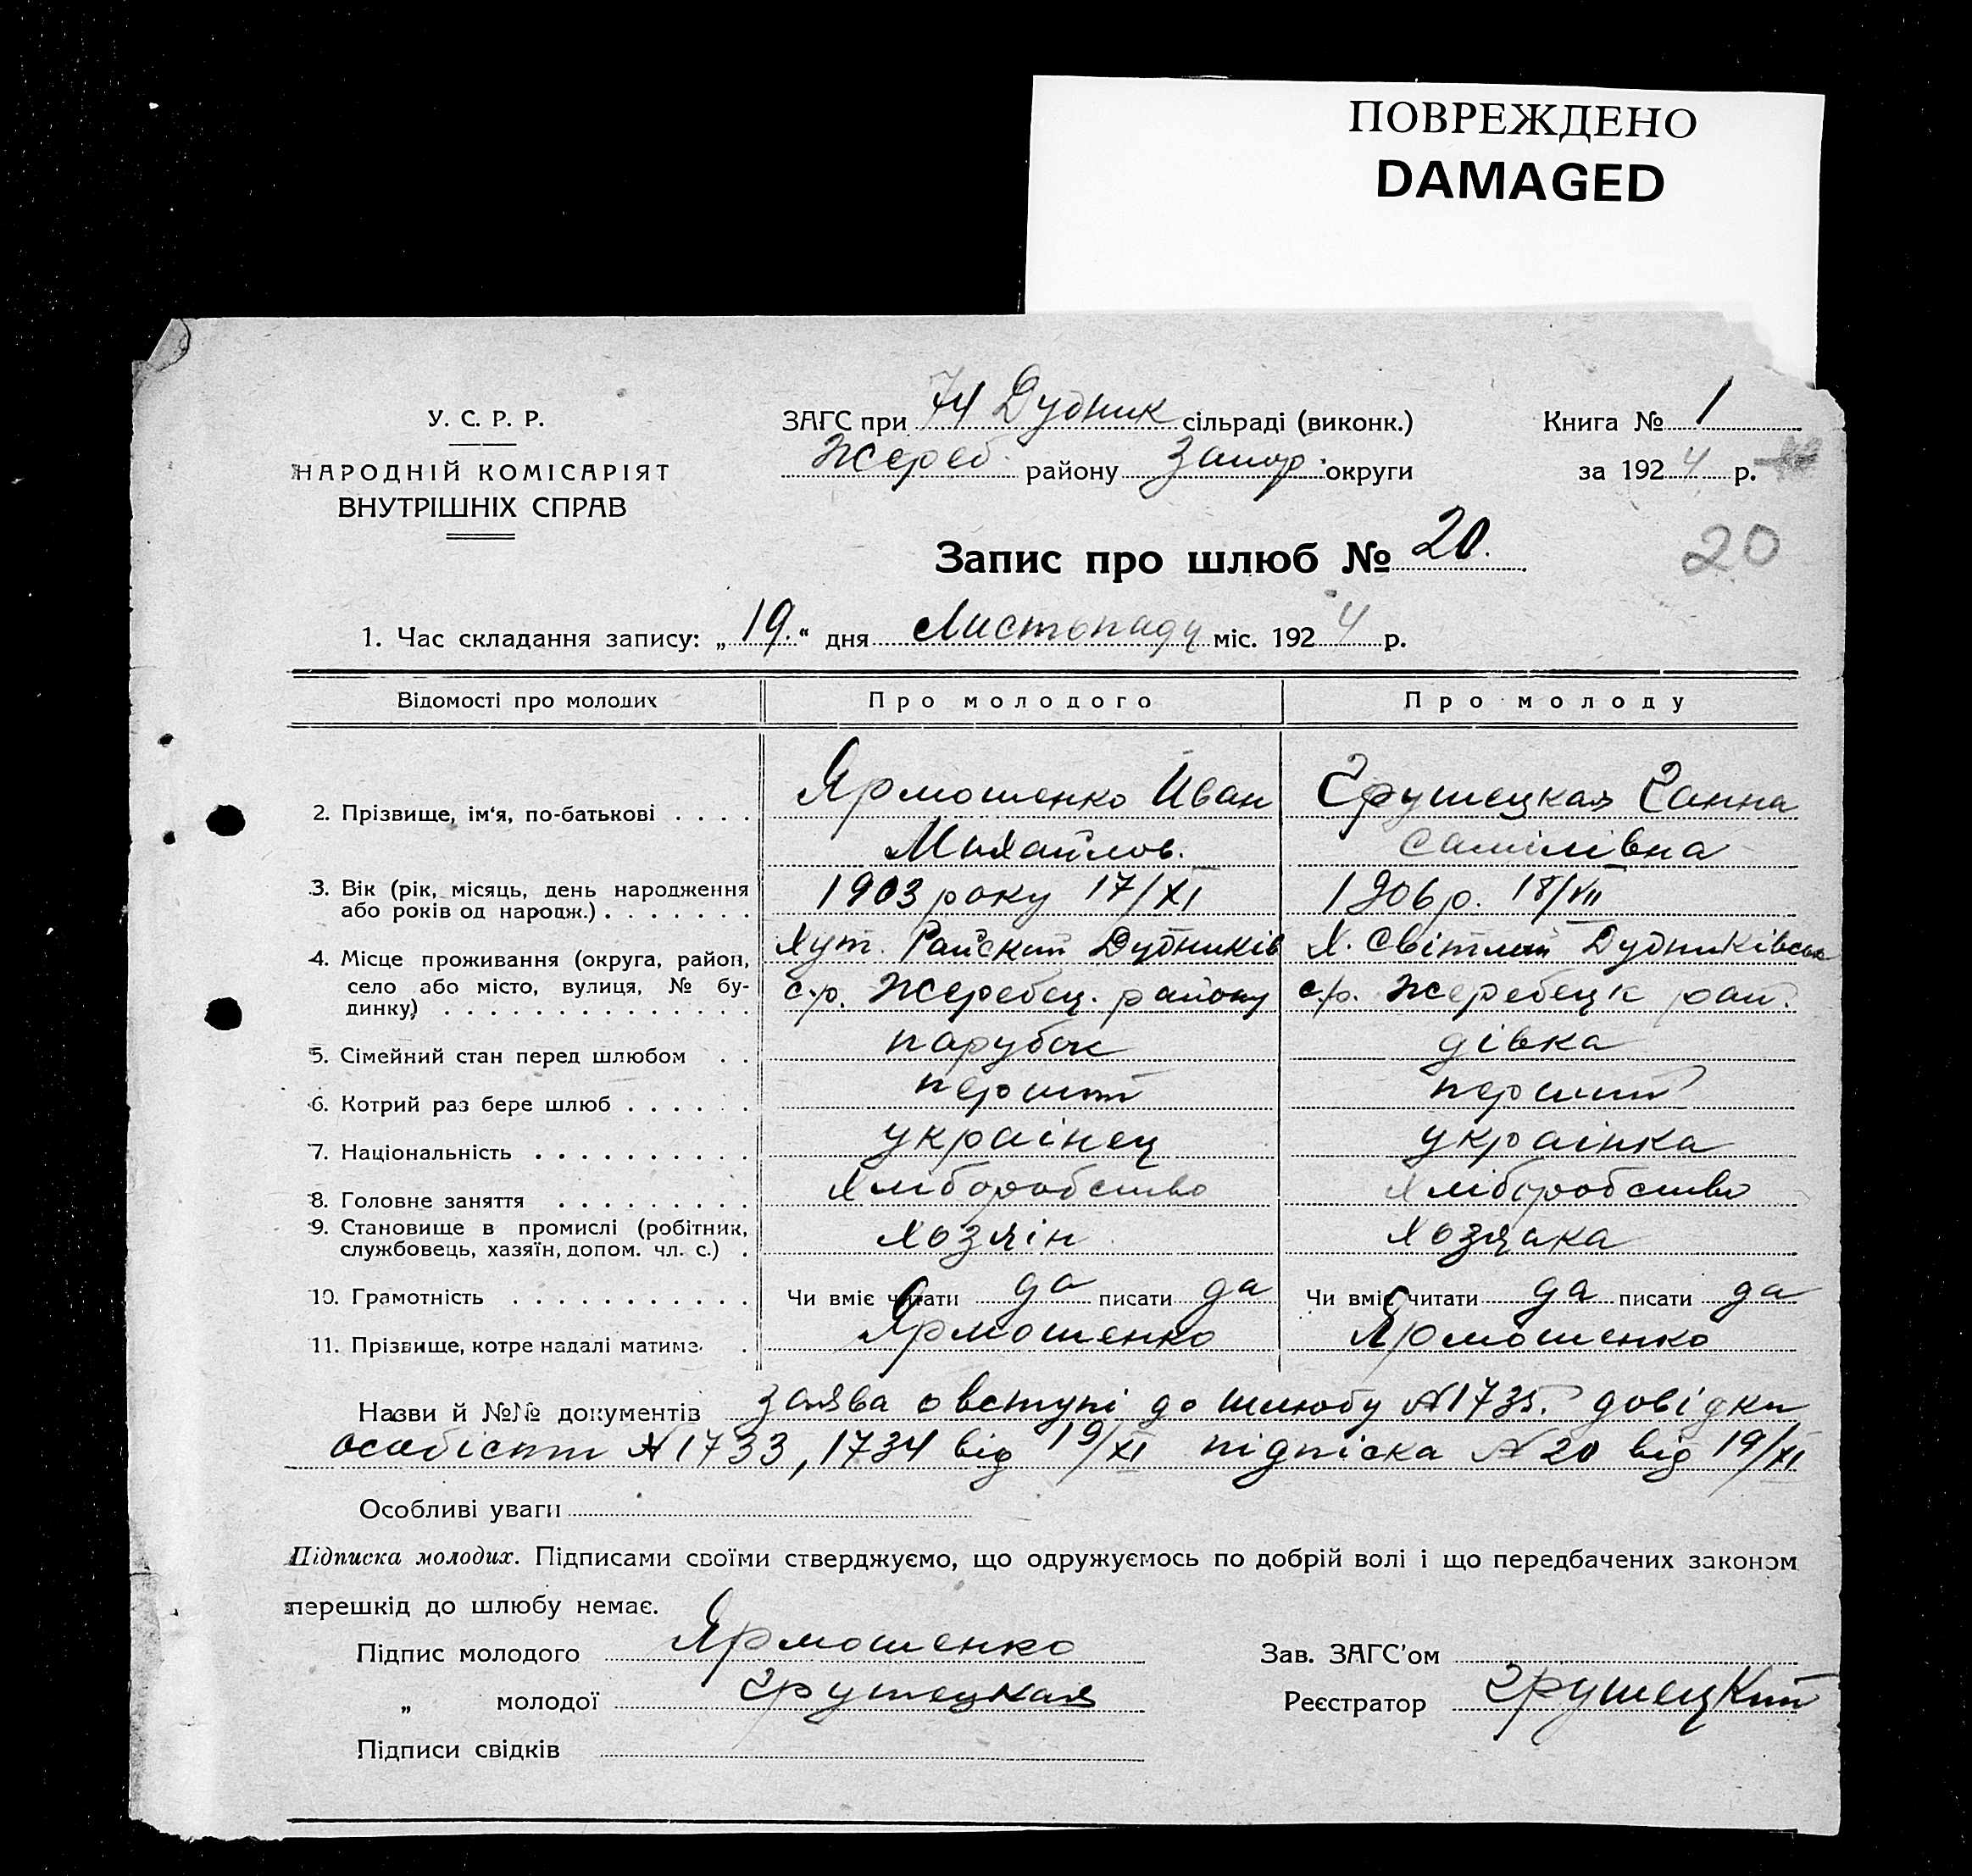 ПОВРЕЖДЕНО
DAMAGED
У. С. Р. Р.
НАРОДНІЙ КОМІСАРІЯТ
ВНУТРІШНІХ СПРАВ
ЗАГС при 74 Дудник сільраді (виконк.)
Жереб. району Запор. округи
Книга № 1
за 1924 р.
Запис про шлюб № 20.
20
1. Час складання запису: „19.“ дня Листопаду міс. 1924 р.
Відомості про молодих Про молодого Про молоду
2. Прізвище, ім‘я, по-батькові . . . . Ярмошенко Иван Грушецкая Ганна
Михайлов. Самілівна
3. Вік (рік, місяць, день народження 1903 року 17/XI 1906 р. 18/VII
або років од народж.) . . . . . . .
4. Місце проживання (округа, район, Хут. Райский Дудників Х. Світлий Дудниківськ
село або місто, вулиця, № бу- с.р. Жеребец. району с/р. Жеребецьк рай.
динку) . . . . . . . . . . . . . .
5. Сімейний стан перед шлюбом . . парубок дівка
6. Котрий раз бере шлюб . . . . . . перший перший
7. Національність . . . . . . . . . . українец українка
8. Головне заняття . . . . . . . . . Хліборобство Хліборобство
9. Становище в промислі (робітник, Хозяін Хозяйка
службовець, хазяїн, допом. чл. с.) .
10. Грамотність . . . . . . . . . . . Чи вміє читати да писати да Чи вміє читати да писати да
11. Прізвище, котре надалі матиме . Ярмошенко Ярмошенко
Назви й №№ документів заява о вступі до шлюбу №1735. довідки
особісти №1733, 1734 від 19/XI підпіска №20 від 19/XI
Особливі уваги
Підписка молодих. Підписами своїми стверджуємо, що одружуємось по добрій волі і що передбачених законом
перешкід до шлюбу немає.
Підпис молодого Ярмошенко Зав. ЗАГС'ом
„ молодої Грушецкая Реєстратор Грушецкий
Підписи свідків